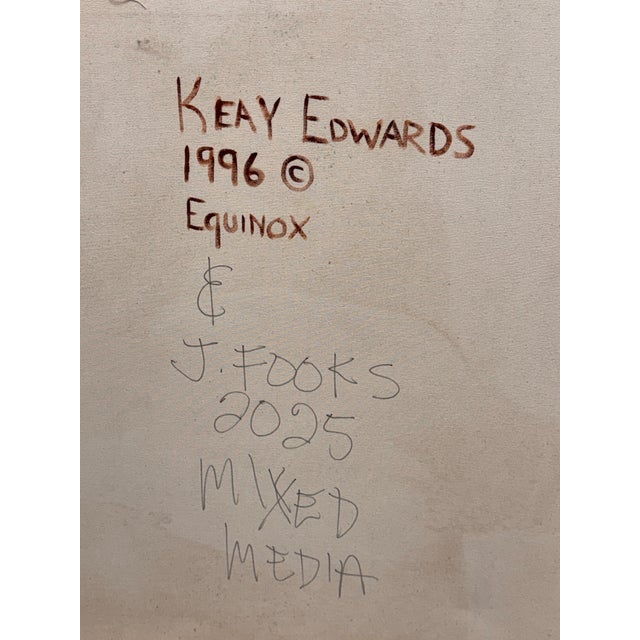 KEAY EDWARDS
1996 ©
EQUINOX
&
J. FOOKS
2025
MIXED
MEDIA